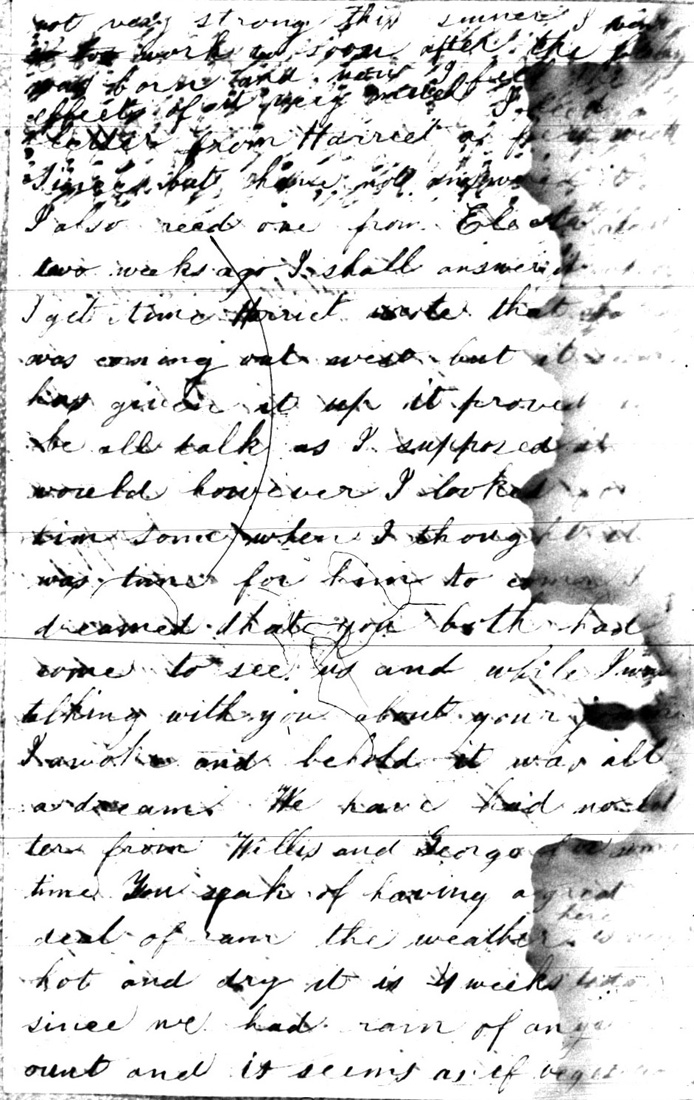 not very strong this summer I went
to work so soon after the
was born and now I feel the
effects of it very much I recd a
letter from Harriet a few week
Since but have not answered it
I also recd one from
two weeks ago I shall answer it
I get time Harriet wrote that
was coming out west but it
has given it up it proved
be all talk as I supposed it
would however I looked for
him some when I thought it
was time for him to come I
dreamed that you both had
come to see us and while I was
talking with you about your
I awoke and behold it was all
a dream We have had no let
ter from Willis and George for some
time You speak of having a grad
deal of rain the weather here is very
hot and dry it is 4 weeks
since we had rain of any
ount and it seems as if